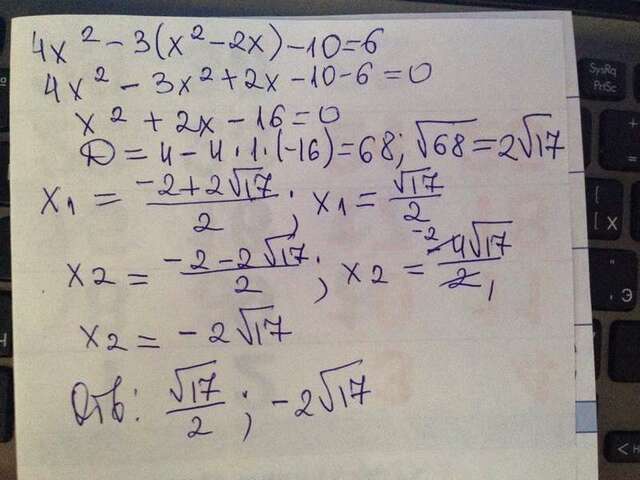 4x² - 3(x² - 2x) - 10 = 6
4x² - 3x² + 2x - 10 - 6 = 0
x² + 2x - 16 = 0
D = 4 - 4·1·(-16) = 68; √68 = 2√17
x₁ = (-2 + 2√17)/2; x₁ = √17/2
x₂ = (-2 - 2√17)/2; x₂ = -4√17/2, -2
x₂ = -2√17
Отв: √17/2; -2√17
SysRq
PrtSc
{
[ Х
Э